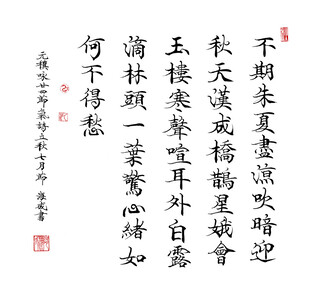 不期朱夏盡涼吹暗迎
秋天漢成橋鵲星娥會
玉樓寒聲喧耳外白露
滴林頭一葉驚心緒如
何不得愁
元稹咏廿四節氣詩立秋七月節 書